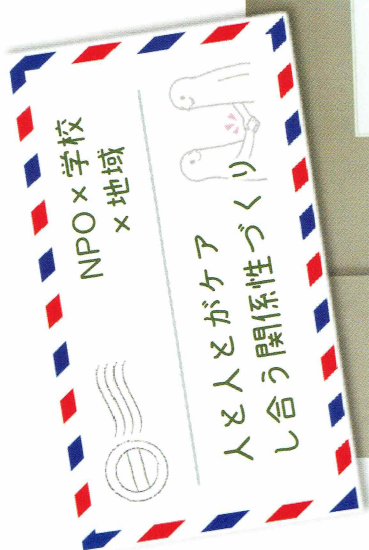 NPO×学校
×地域
人と人とがケア
し合う関係性づくり